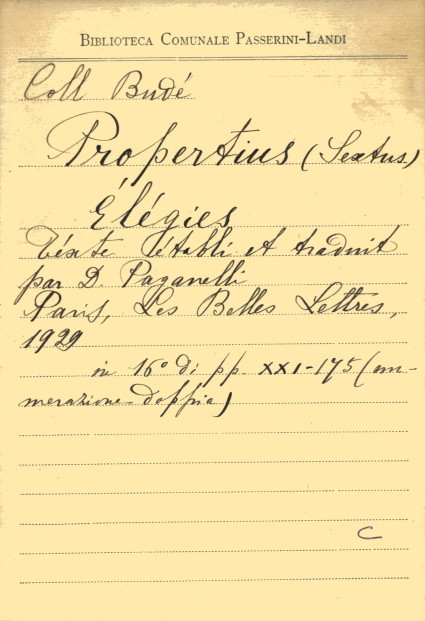 BIBLIOTECA COMUNALE PASSERINI-LANDI
Coll Budé
Propertius (Sextus)
Élégies
Téxte établi et traduit
par D. Paganelli
Paris, Les Belles Lettres,
1929
in 16° di pp. XXI-175 (nu-
merazione doppia)
C